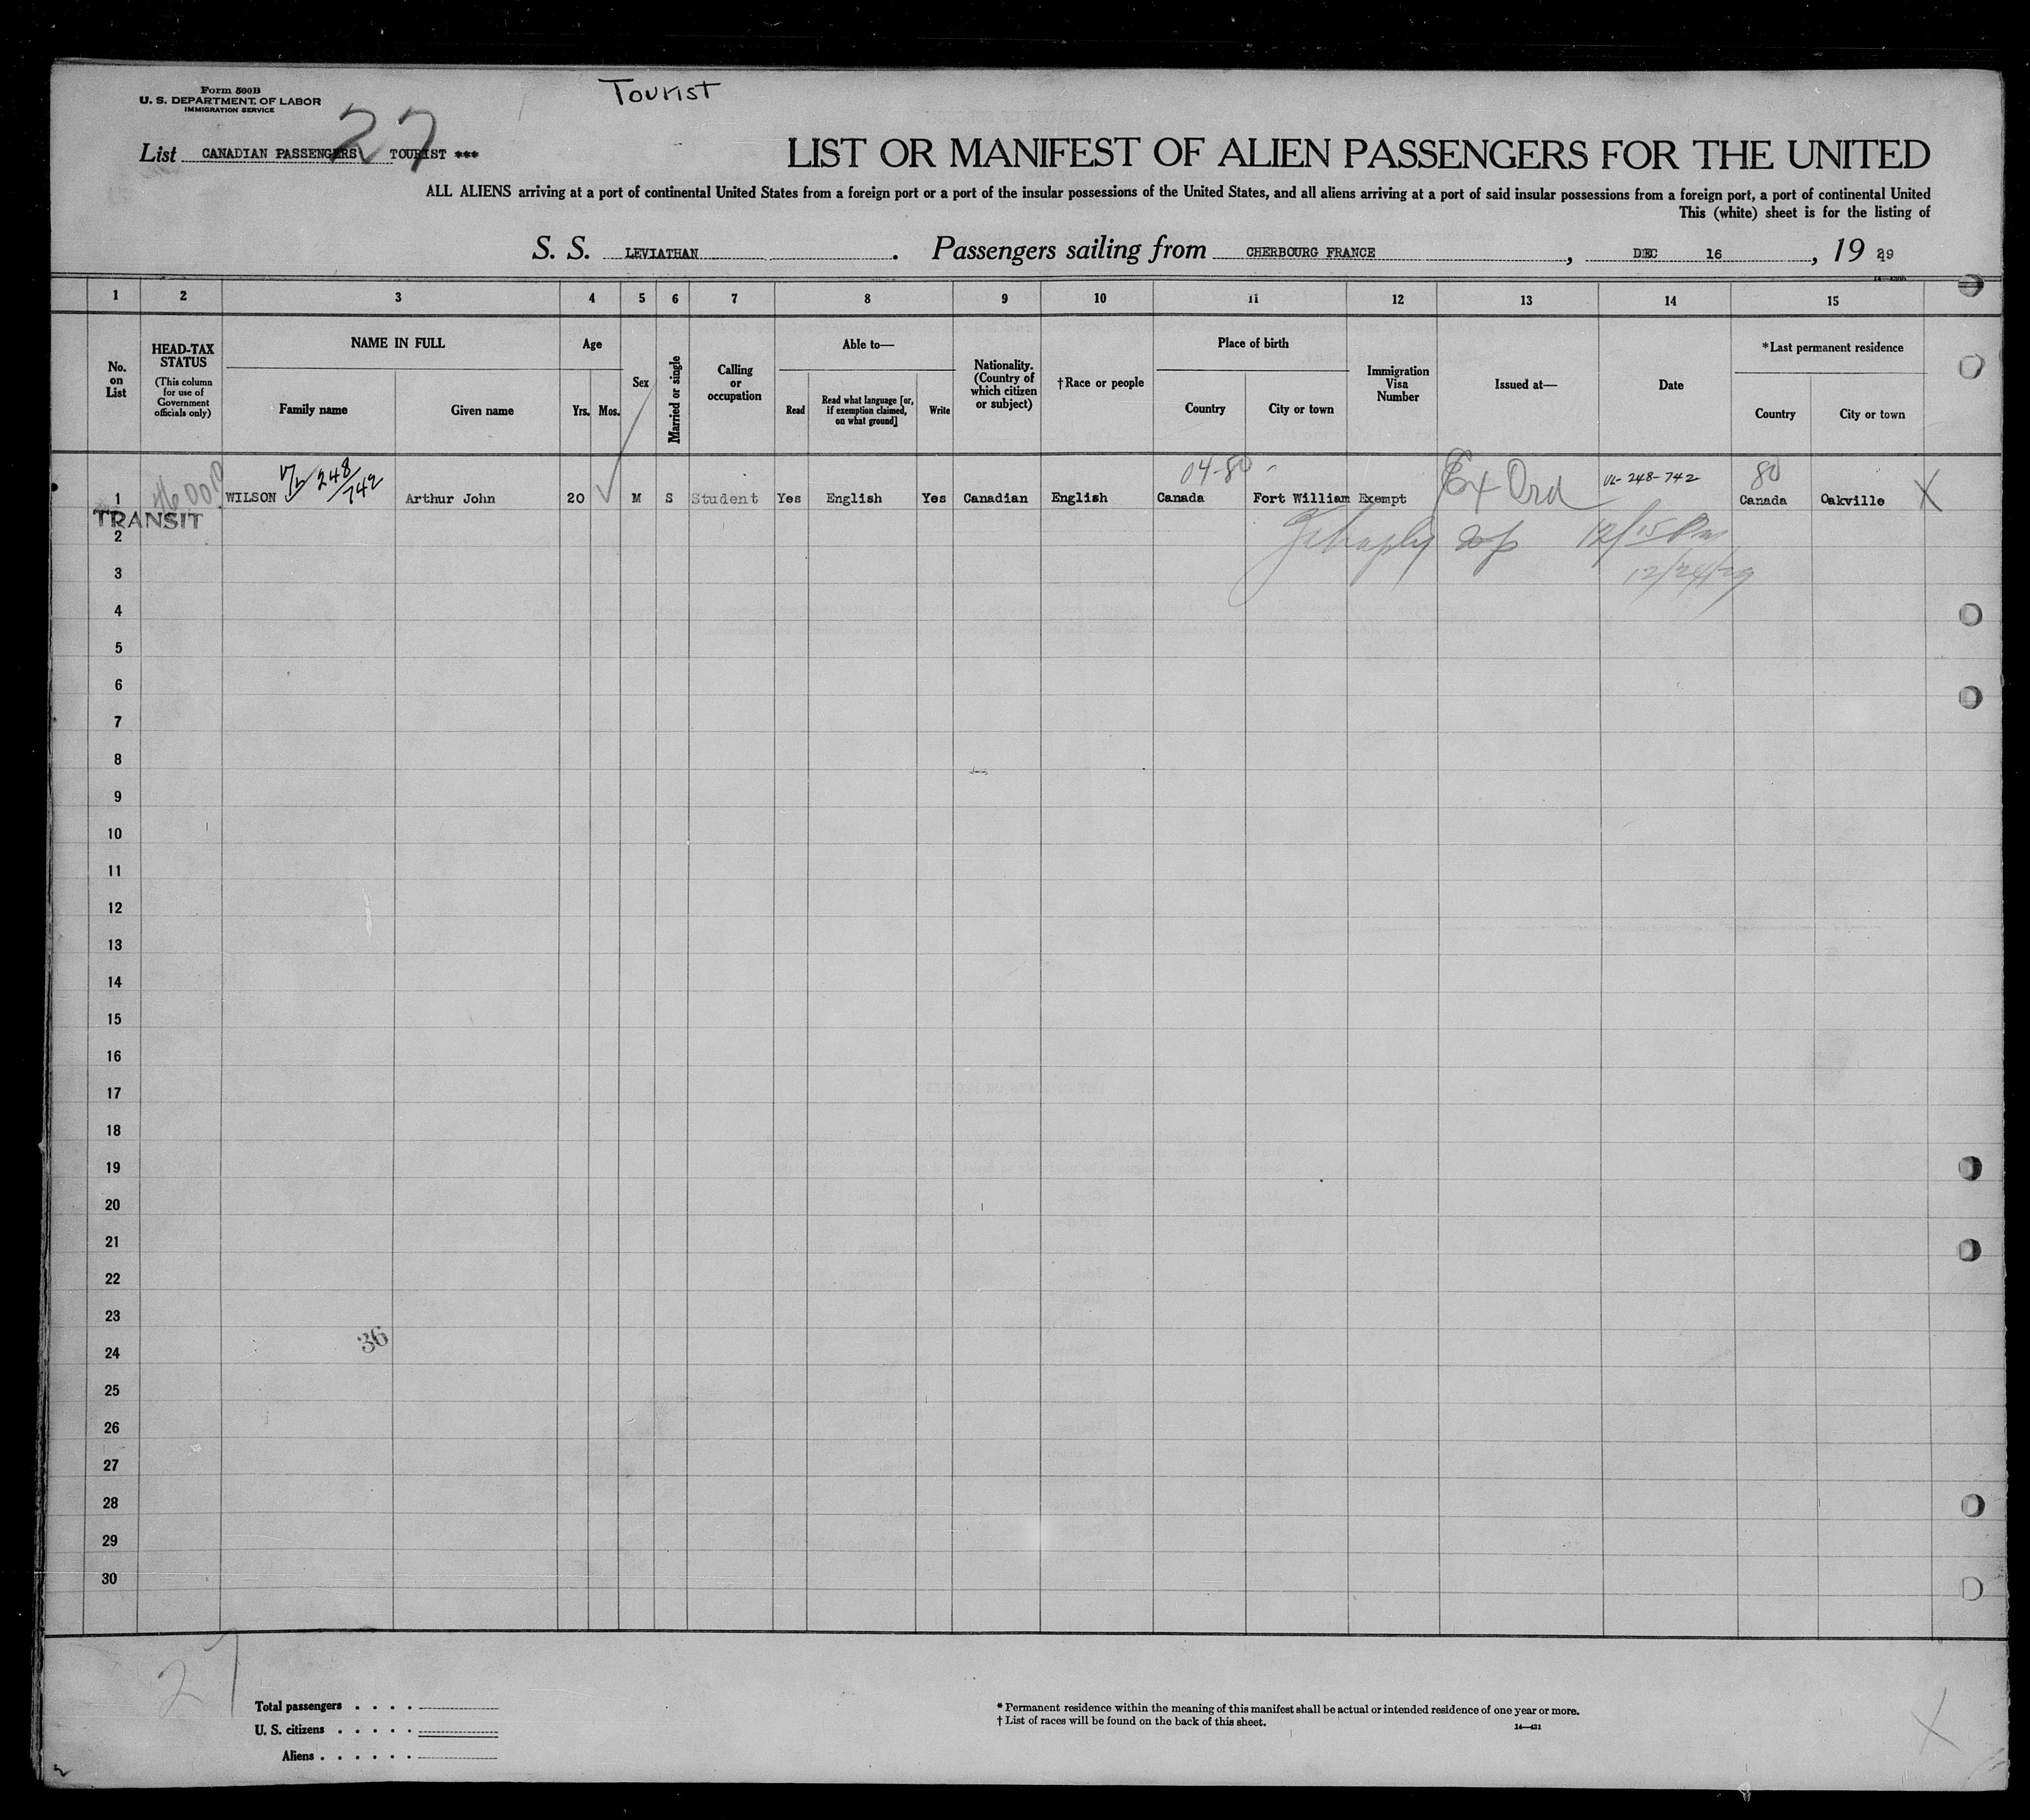 Form 500B
U. S. DEPARTMENT OF LABOR
IMMIGRATION SERVICE
Tourist
27
List CANADIAN PASSENGERS TOURIST ***
LIST OR MANIFEST OF ALIEN PASSENGERS FOR THE UNITED
ALL ALIENS arriving at a port of continental United States from a foreign port or a port of the insular possessions of the United States, and all aliens arriving at a port of said insular possessions from a foreign port, a port of continental United
This (white) sheet is for the listing of
S. S. LEVIATHAN . Passengers sailing from CHERBOURG FRANCE , DEC 16 , 19 29
1 2 3 4 5 6 7 8 9 10 11 12 13 14 15
No. on List
HEAD-TAX STATUS
(This column for use of Government officials only)
NAME IN FULL
Family name
Given name
Age
Yrs.
Mos.
Sex
Married or single
Calling or occupation
Able to—
Read
Read what language [or, if exemption claimed, on what ground]
Write
Nationality. (Country of which citizen or subject)
†Race or people
Place of birth
Country
City or town
Immigration Visa Number
Issued at—
Date
*Last permanent residence
Country
City or town
248/742
04-80
Ex Ord
248-742
80
1 WILSON Arthur John 20 M S Student Yes English Yes Canadian English Canada Fort William Exempt Canada Oakville X
TRANSIT
2
12/15
3
12/24/29
4
5
6
7
8
9
10
11
12
13
14
15
16
17
18
19
20
21
22
23
36
24
25
26
27
28
29
30
27
Total passengers . . . .
U. S. citizens . . . . .
Aliens . . . . . .
* Permanent residence within the meaning of this manifest shall be actual or intended residence of one year or more.
† List of races will be found on the back of this sheet.
14—431
X